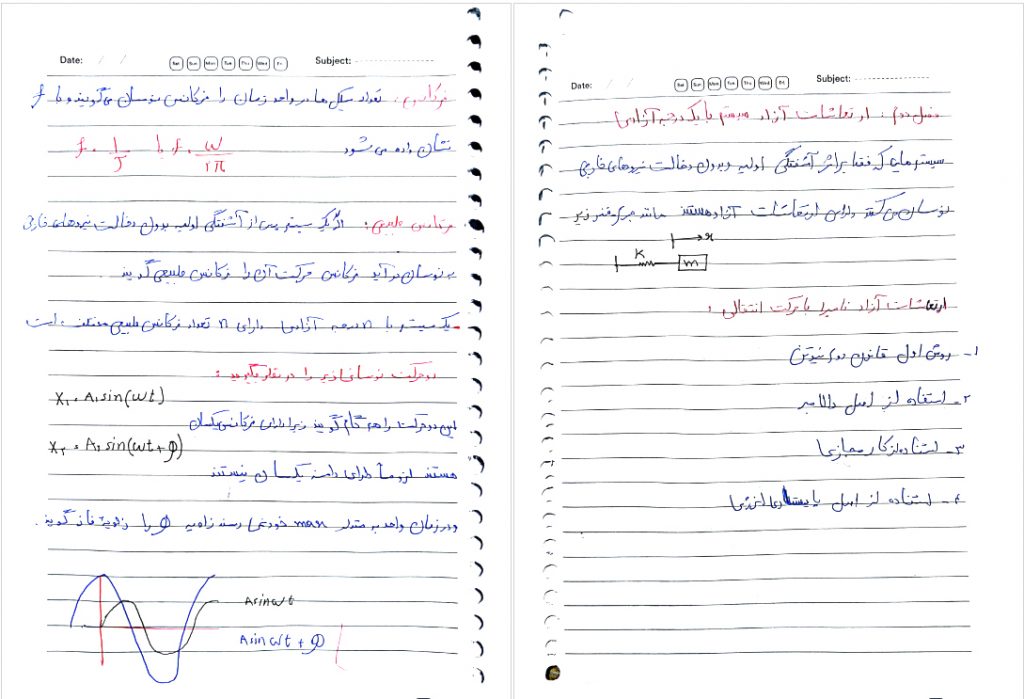 Date: / /
Sat Sun Mon Tue Thu Wed Fri
Subject:
فرکانس: تعداد سیکل ها در واحد زمان را فرکانس نوسان می گویند و با f
نشان داده می شود f = 1/T یا f = ω/2π
فرکانس طبیعی: اگر یک سیستم پس از آشفتگی اولیه بدون دخالت نیروهای خارجی
به نوسان در آید فرکانس حرکت آن را فرکانس طبیعی گویند.
یک سیستم با n درجه آزادی دارای n تعداد فرکانس طبیعی مختلف است
دو حرکت نوسانی زیر را در نظر بگیرید:
X₁ = A₁ sin(ωt)
این دو حرکت را هم گام گویند زیرا دارای فرکانس یکسان
X₂ = A₂ sin(ωt + φ)
هستند لزوماً دارای دامنه یکسان نیستند
و در زمان واحد به مقدار max خود نمی رسند زاویه φ را زاویه فاز گویند.
A sin ωt
A sin ωt + φ
Date: / /
Sat Sun Mon Tue Thu Wed Fri
Subject:
فصل دوم: ارتعاشات آزاد سیستم با یک درجه آزادی
سیستم هایی که فقط بر اثر آشفتگی اولیه و بدون دخالت نیروهای خارجی
نوسان می کنند دارای ارتعاشات آزاد هستند مانند جرم و فنر زیر
x
K
m
ارتعاشات آزاد نامیرا با حرکت انتقالی:
۱- روش اول قانون دوم نیوتن
۲- استفاده از اصل دالامبر
۳- استفاده از کار مجازی
۴- استفاده از اصل پایستاری انرژی